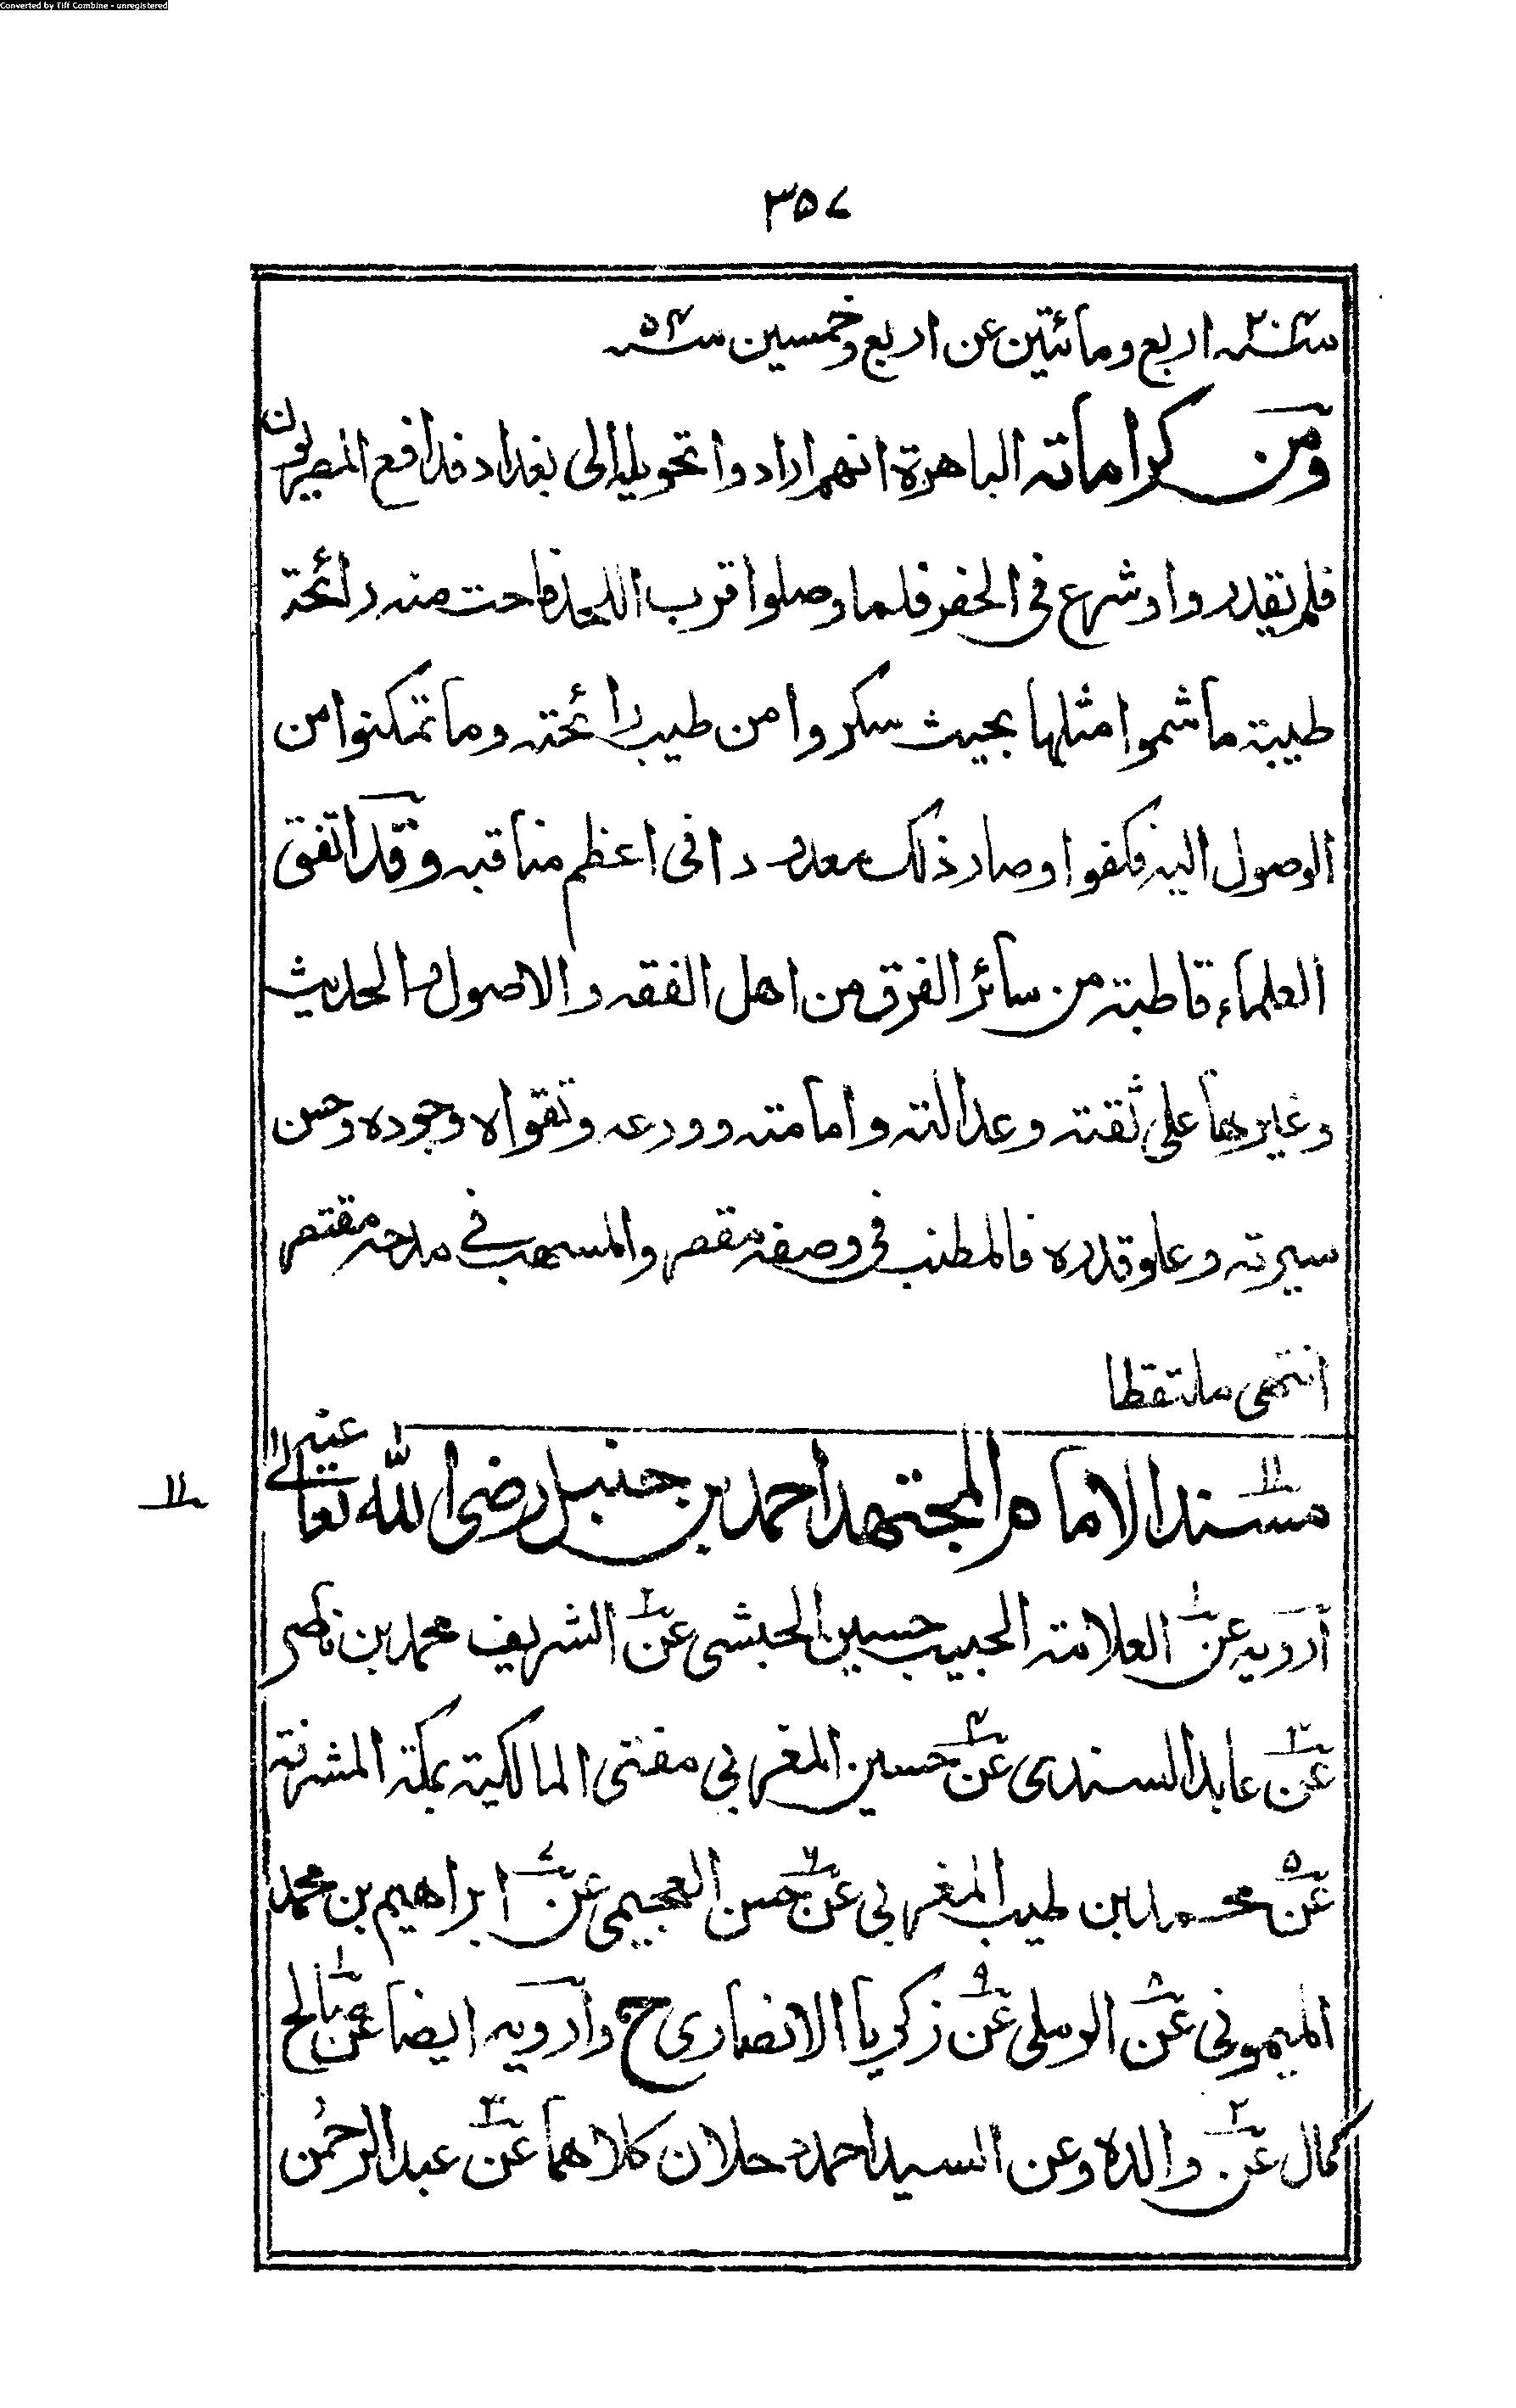 Converted by Tiff Combine - unregistered
۳۵۷
سنة ۲۰۴ اربع ومائتين عن اربع وخمسين سنة ۵۴
ومن كراماته الباهرة انهم ارادوا تحويله الى بغداد فدافع المصريون
فلم يقدروا وشرع فى الحفر فلما وصلوا قرب اللحد فاحت منه رائحة
طيبة ما شموا مثلها بحيث سكروا من طيب رائحته وما تمكنوا من
الوصول اليه فكفوا وصار ذلك معدودا فى اعظم مناقبه وقد اتفق
العلماء قاطبة من سائر الفرق من اهل الفقه والاصول والحديث
وغيرها على ثقته وعدالته وامامته وورعه وتقواه وجوده وحسن
سيرته وعلو قدره فالمطنب فى وصفه مقصر والمسهب فى مدحه مقتصر
انتهى ملتقطا
۱۱ مسند الامام المجتهد احمد بن حنبل رضى الله تعالى عنه
۱۱
ارويه عن ۱ العلامة الحبيب حسين الحبشى عن ۲ الشريف محمد بن ناصر
عن ۳ عابد السندى عن ۴ حسين المغربي مفتى المالكية بمكة المشرفة
عن ۵ محمد بن طيب المغربي عن ۶ حسن العجيمى عن ۷ ابراهيم بن محمد
الميمونى عن ۸ الرملى عن ۹ زكريا الانصارى ح وارويه ايضا عن ۱ صالح
كمال عن ۲ والده وعن السيد احمد دحلان كلاهما عن ۳ عبد الرحمن